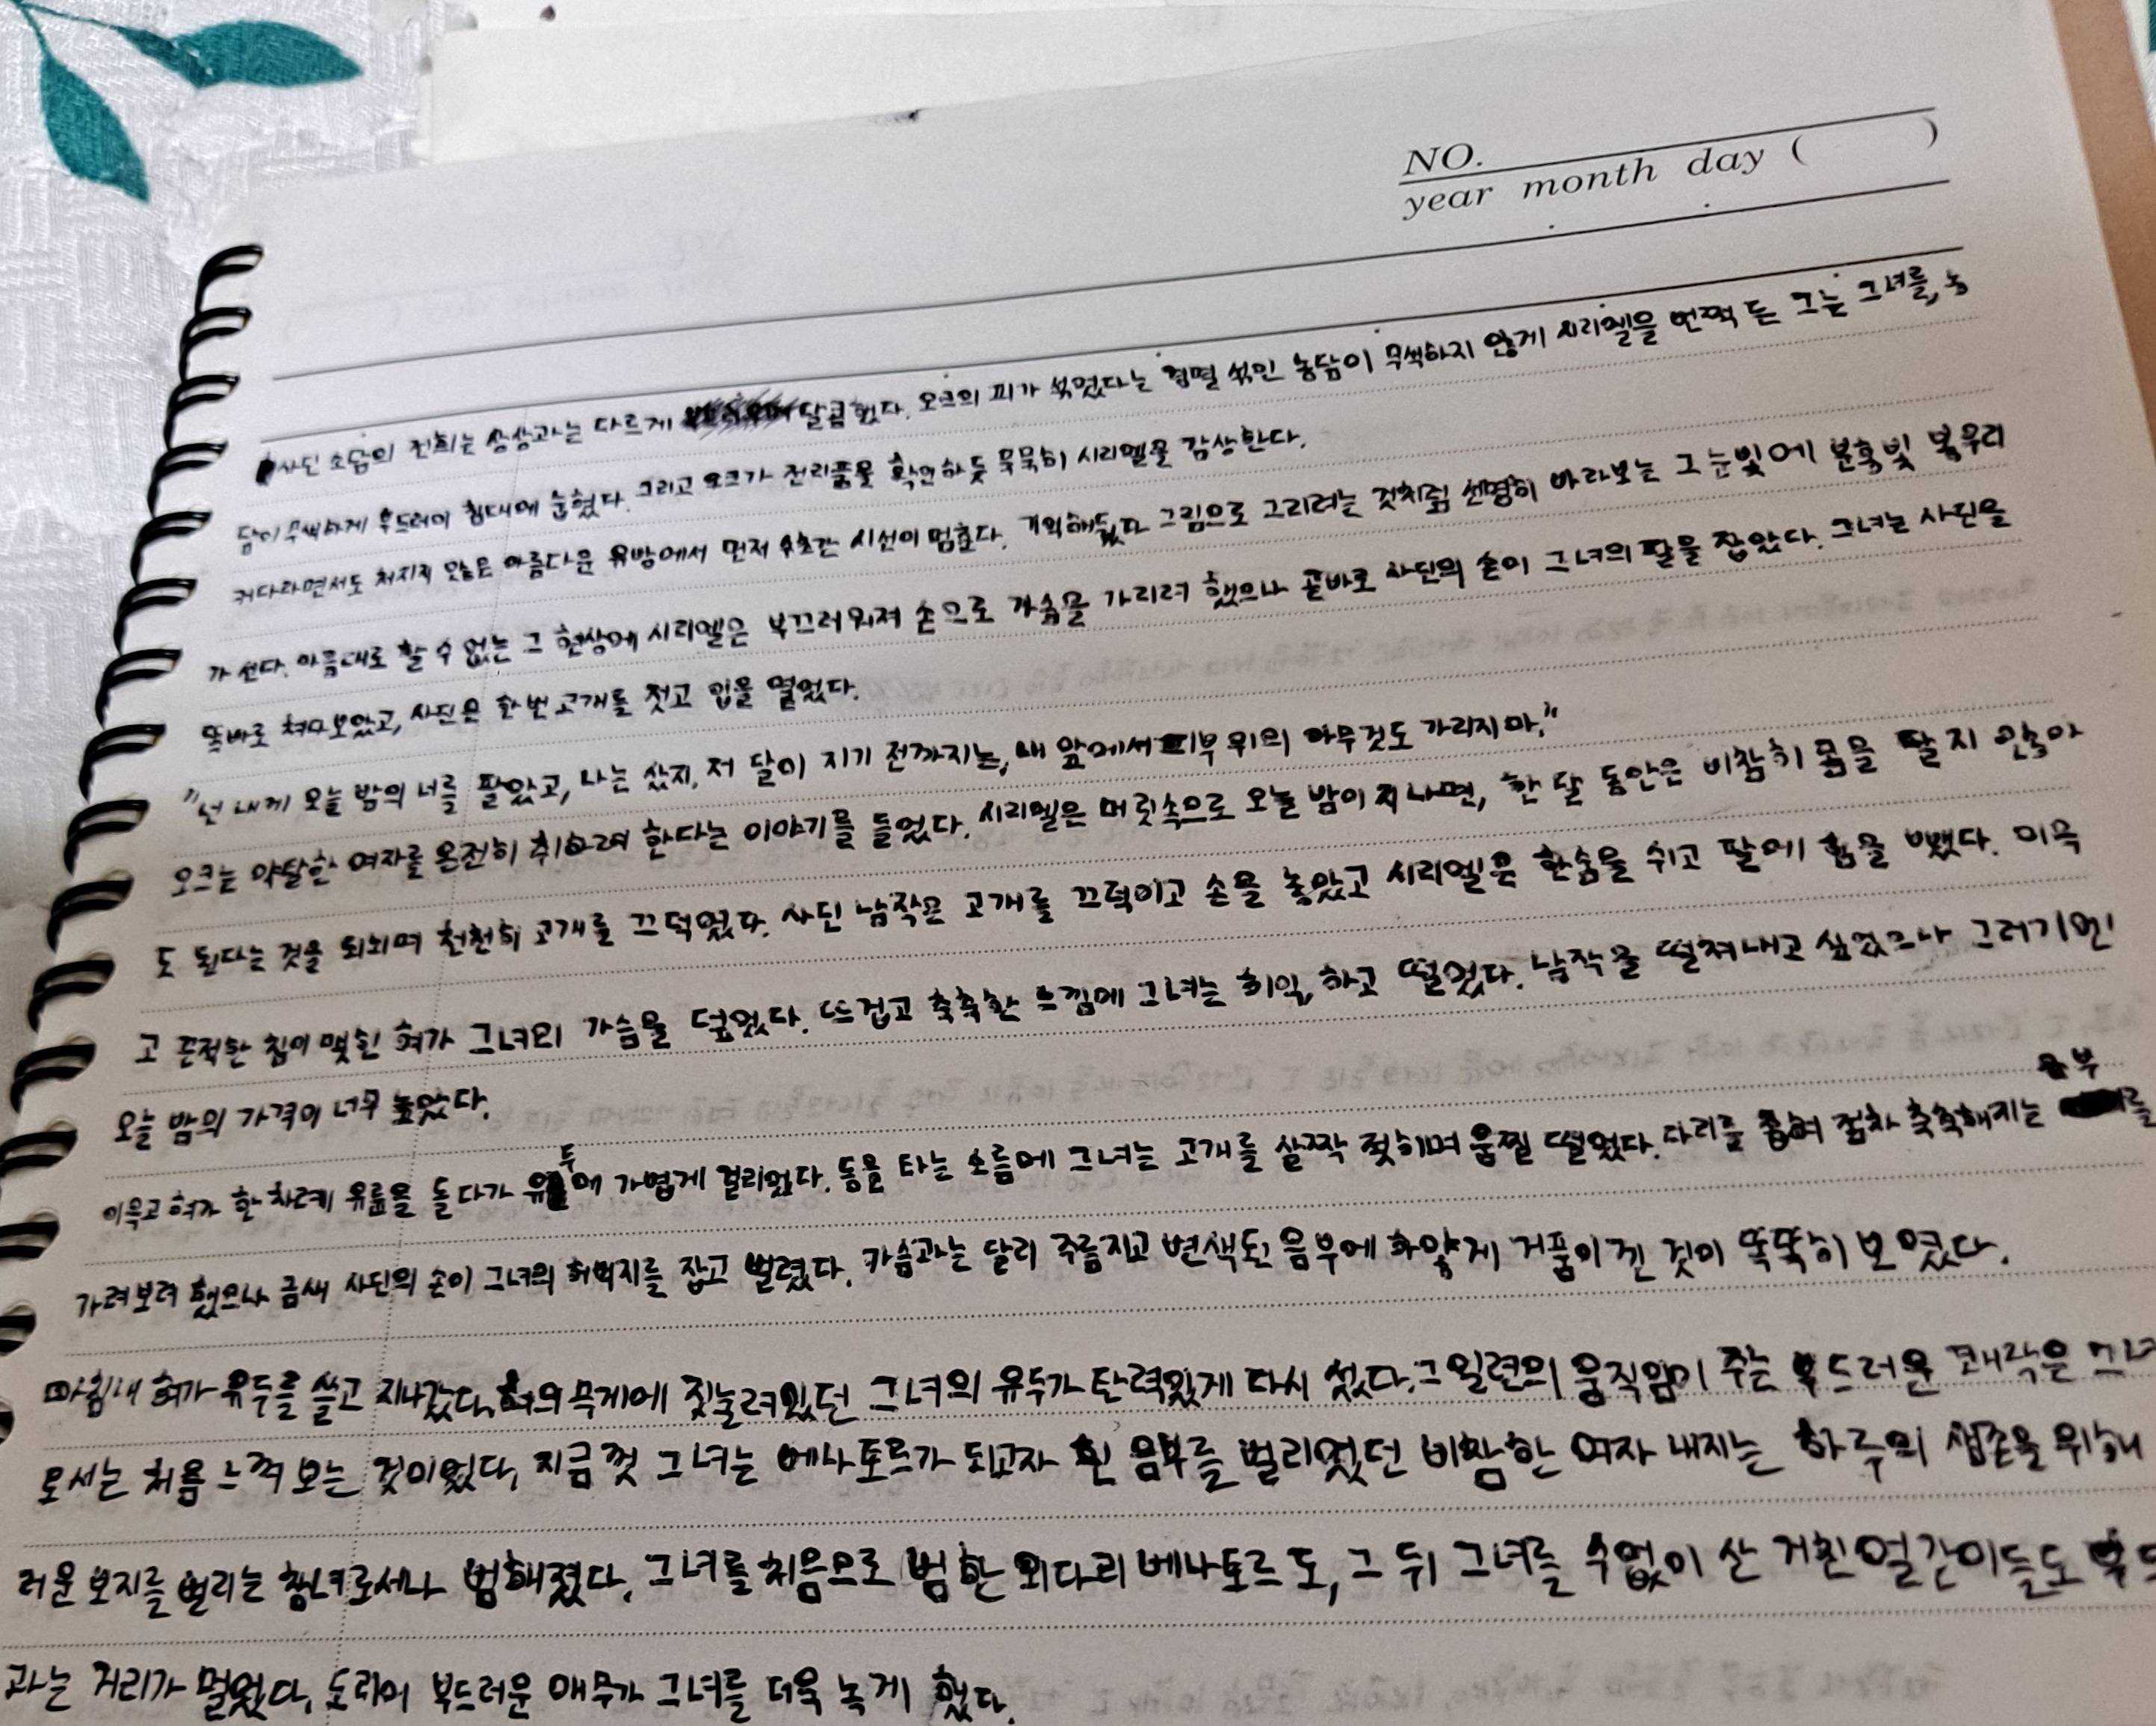 NO.
year month day ( )
사딘 소담의 전희는 상상과는 다르게 달콤했다. 오크의 피가 섞였다는 경멸 섞인 농담이 무색하지 않게 시리엘을 번쩍 든 그는 그녀를, 농
담이 무색하게 부드러이 침대에 눕혔다. 그리고 오크가 전리품을 확인하듯 묵묵히 시리엘을 감상한다.
커다라면서도 처지지 않은 아름다운 유방에서 먼저 수초간 시선이 멈췄다. 기억해뒀다 그림으로 그리려는 것처럼 선명히 바라보는 그 눈빛에 분홍빛 봉우리
가 선다. 마음대로 할 수 없는 그 현상에 시리엘은 부끄러워져 손으로 가슴을 가리려 했으나 곧바로 사딘의 손이 그녀의 팔을 잡았다. 그녀는 사딘을
똑바로 쳐다보았고, 사딘은 한 번 고개를 젓고 입을 열었다.
"넌 내게 오늘 밤의 너를 팔았고, 나는 샀지. 저 달이 지기 전까지는, 내 앞에서 피부 위의 아무것도 가리지 마."
오크는 약탈한 여자를 온전히 취하려 한다는 이야기를 들었다. 시리엘은 머릿속으로 오늘 밤이 지나면, 한 달 동안은 비참히 몸을 팔지 않아
도 된다는 것을 되뇌며 천천히 고개를 끄덕였다. 사딘 남작은 고개를 끄덕이고 손을 놓았고 시리엘은 한숨을 쉬고 팔에 힘을 뺐다. 이윽
고 끈적한 침이 맺힌 혀가 그녀의 가슴을 덮었다. 뜨겁고 축축한 느낌에 그녀는 히익, 하고 떨었다. 남작을 떨쳐내고 싶었으나 그러기엔
오늘 밤의 가격이 너무 높았다.
이윽고 혀가 한 차례 유륜을 돌다가 유두에 가볍게 걸리었다. 등을 타는 소름에 그녀는 고개를 살짝 젖히며 움찔 떨었다. 다리를 좁혀 점차 축축해지는 음부를
가려보려 했으나 금새 사딘의 손이 그녀의 허벅지를 잡고 벌렸다. 가슴과는 달리 주름지고 변색된 음부에 하얗게 거품이 낀 것이 똑똑히 보였다.
마침내 혀가 유두를 쓸고 지나갔다. 혀의 무게에 짓눌려있던 그녀의 유두가 탄력있게 다시 섰다. 그 일련의 움직임이 주는 부드러운 쾌락은 그녀
로서는 처음 느껴 보는 것이었다. 지금껏 그녀는 베나토르가 되고자 흰 음부를 벌리었던 비참한 여자 내지는 하루의 생존을 위해
러운 보지를 벌리는 창녀로서나 범해졌다. 그녀를 처음으로 범한 외다리 베나토르도, 그 뒤 그녀를 수없이 산 거친 얼간이들도
과는 거리가 멀었다. 도리어 부드러운 애무가 그녀를 더욱 녹게 했다.